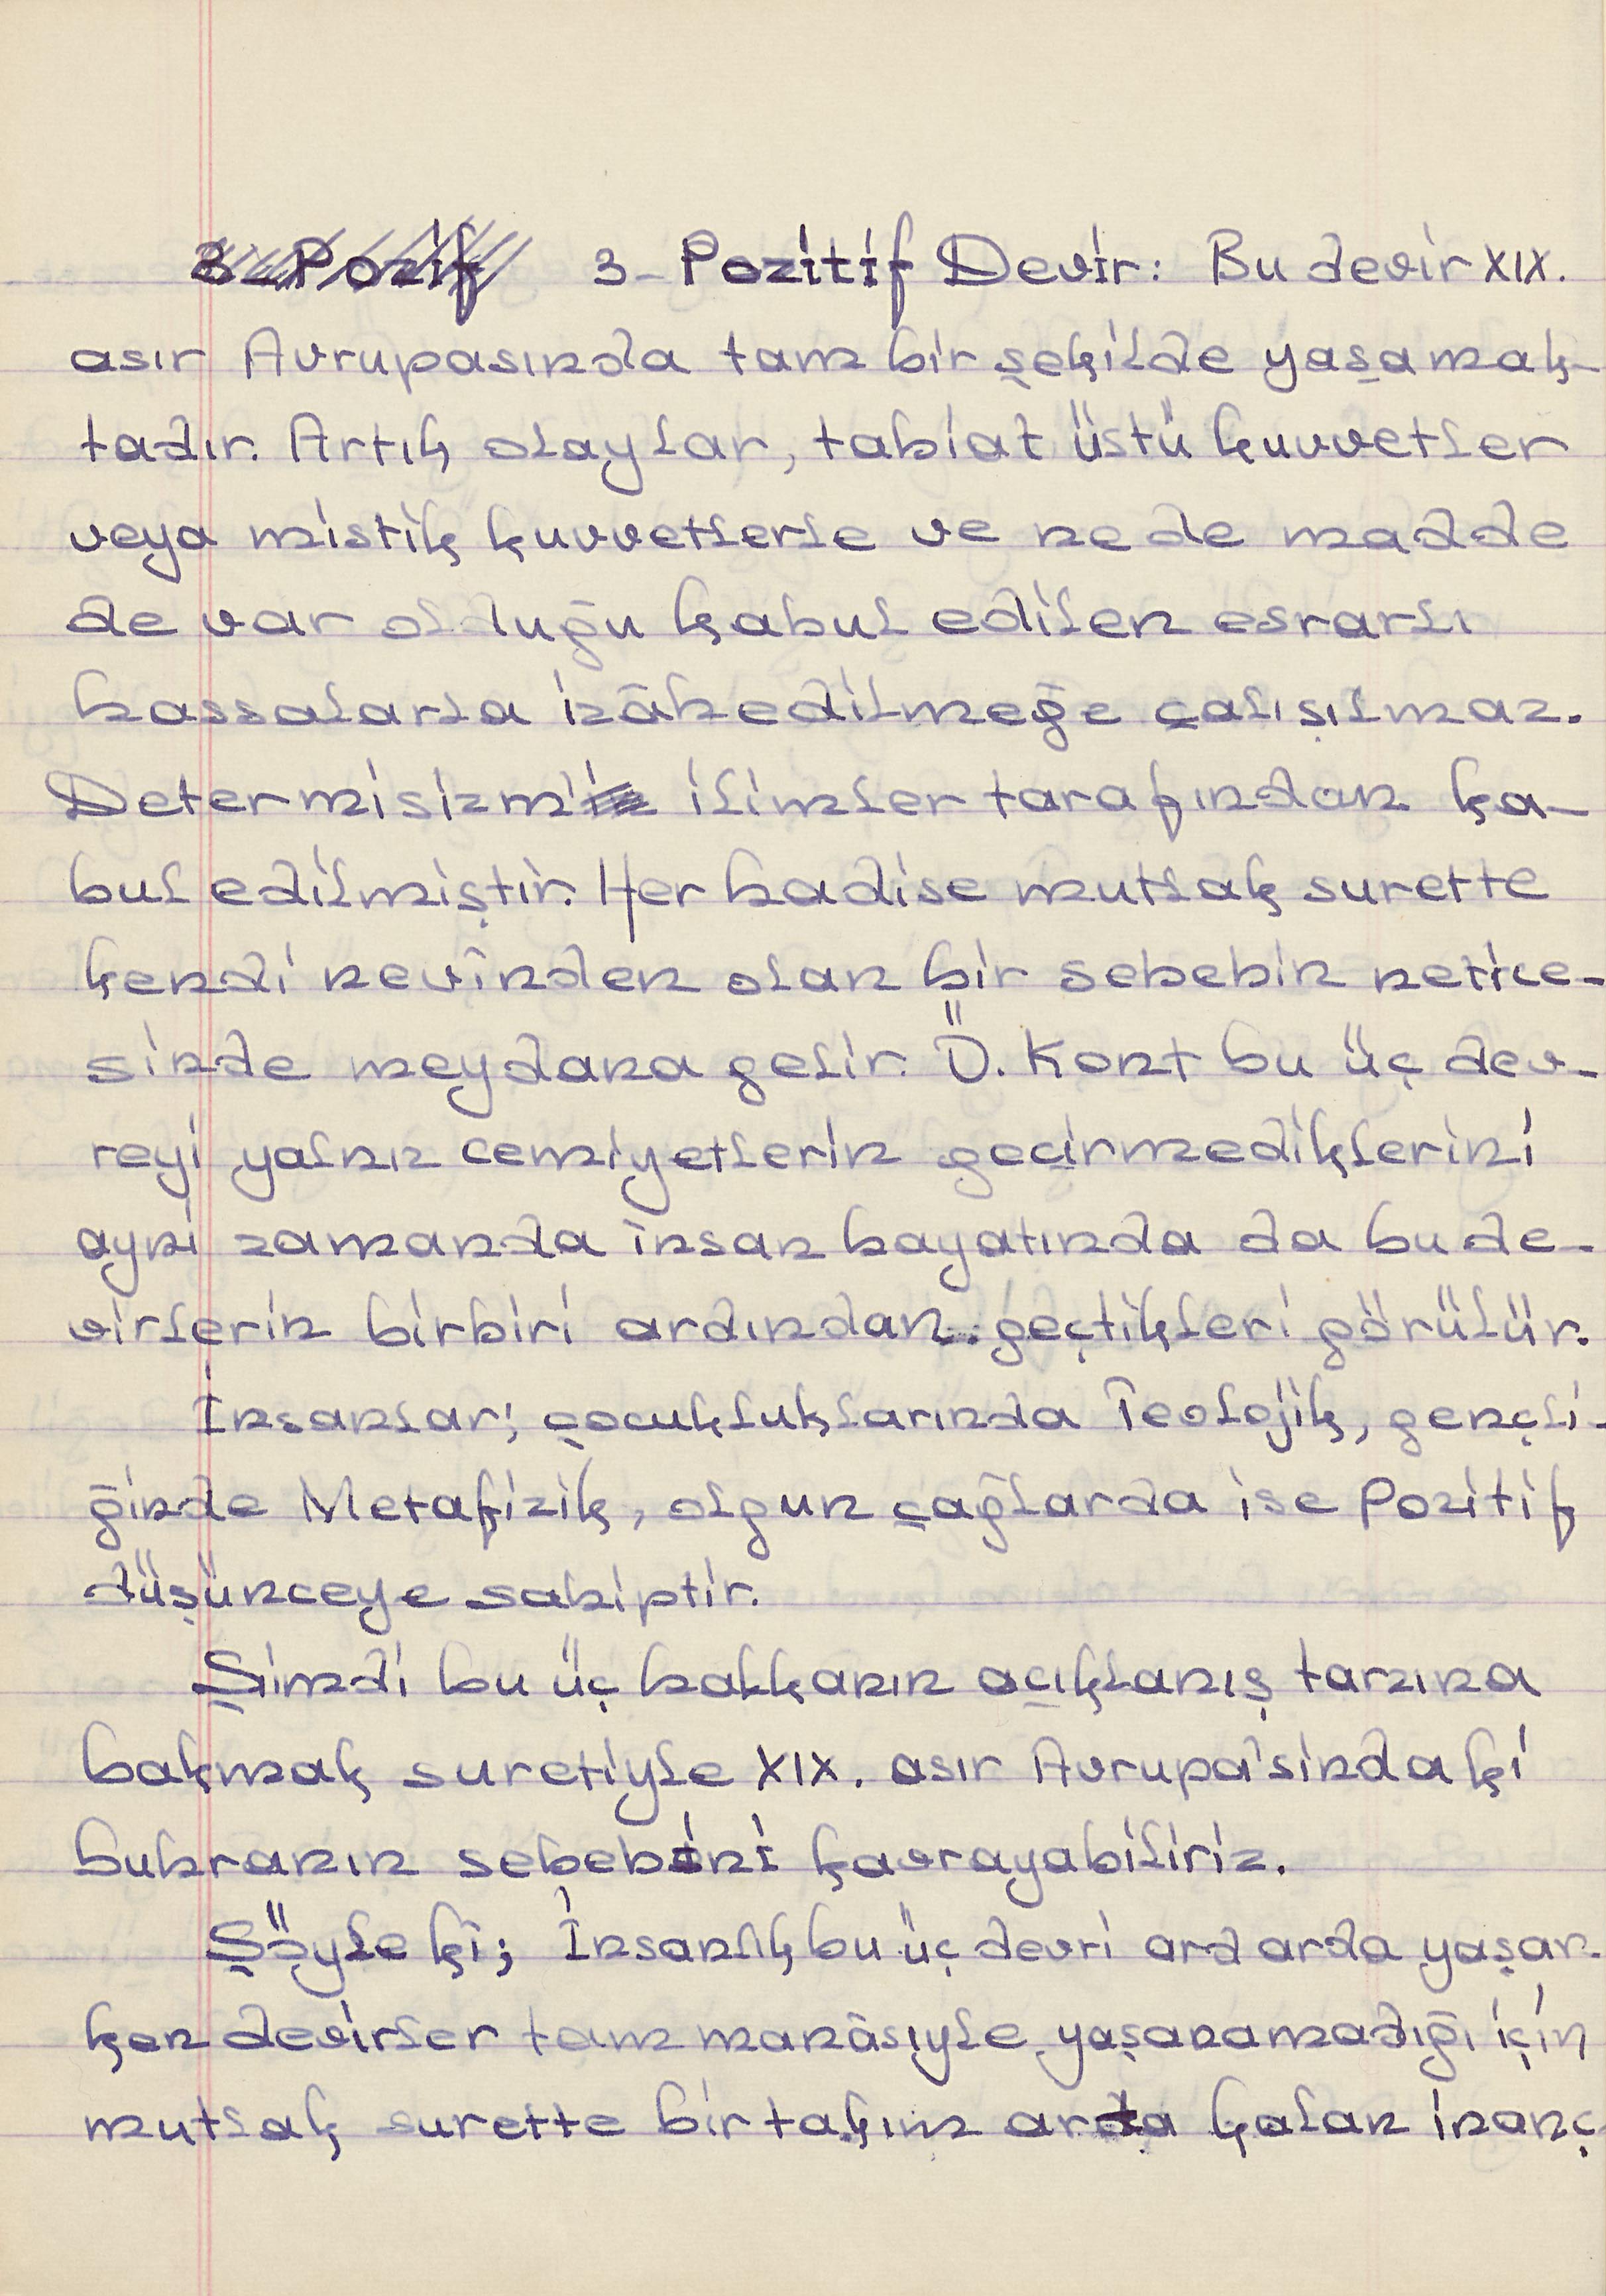 3- Pozitif Devir: Bu devir XIX.
asır Avrupasında tam bir şekilde yaşamak-
tadır. Artık olaylar, tabiat üstü kuvvetler
veya mistik kuvvetlerle ve ne de madde
de var olduğu kabul edilen esrarlı
hassalarla izâh edilmeğe çalışılmaz.
Determisizm ilimler tarafından ka-
bul edilmiştir. Her hadise mutlak surette
kendi nevinden olan bir sebebin netice-
sinde meydana gelir. Ö. Kont bu üç dev-
reyi yalnız cemiyetlerin geçirmediklerini
ayni zamanda insan hayatında da bu de-
virlerin birbiri ardından geçtikleri görülür.
İnsanlar; çocukluklarında Teolojik, gençli-
ğinde Metafizik, olgun çağlarda ise Pozitif
düşünceye sahiptir.
Şimdi bu üç halkanın açıklanış tarzına
bakmak suretiyle XIX. asır Avrupa'sindaki
buhranın sebebini kavrayabiliriz.
Şöyle ki; İnsanlık bu üç devri ard arda yaşar-
ken devirler tam manâsıyle yaşanamadığı için
mutlak surette bir takım arta kalan inanç